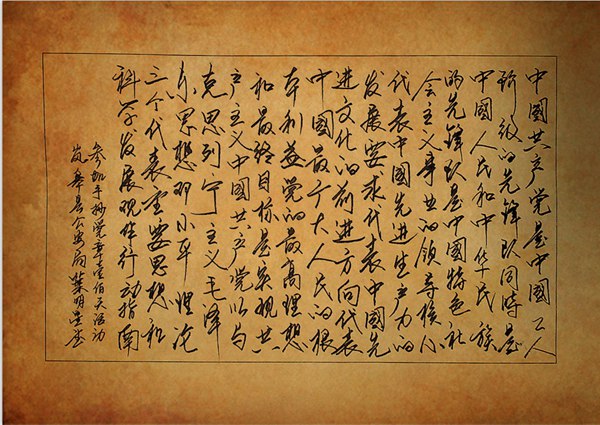 中國共产党是中國工人
阶级的先锋队同時是
中國人民和中华民族
的先锋队是中國特色社
会主义事业的领导核心
代表中國先进生产力的
发展要求代表中國先
进文化的前进方向代表
中國最广大人民的根
本利益党的最高理想
和最终目标是实现共
产主义中國共产党以马
克思列宁主义毛泽
东思想邓小平理论
三个代表重要思想和
科学发展观作行动指南
参加手抄党章壹佰天活动
岚皋县公安局葉明